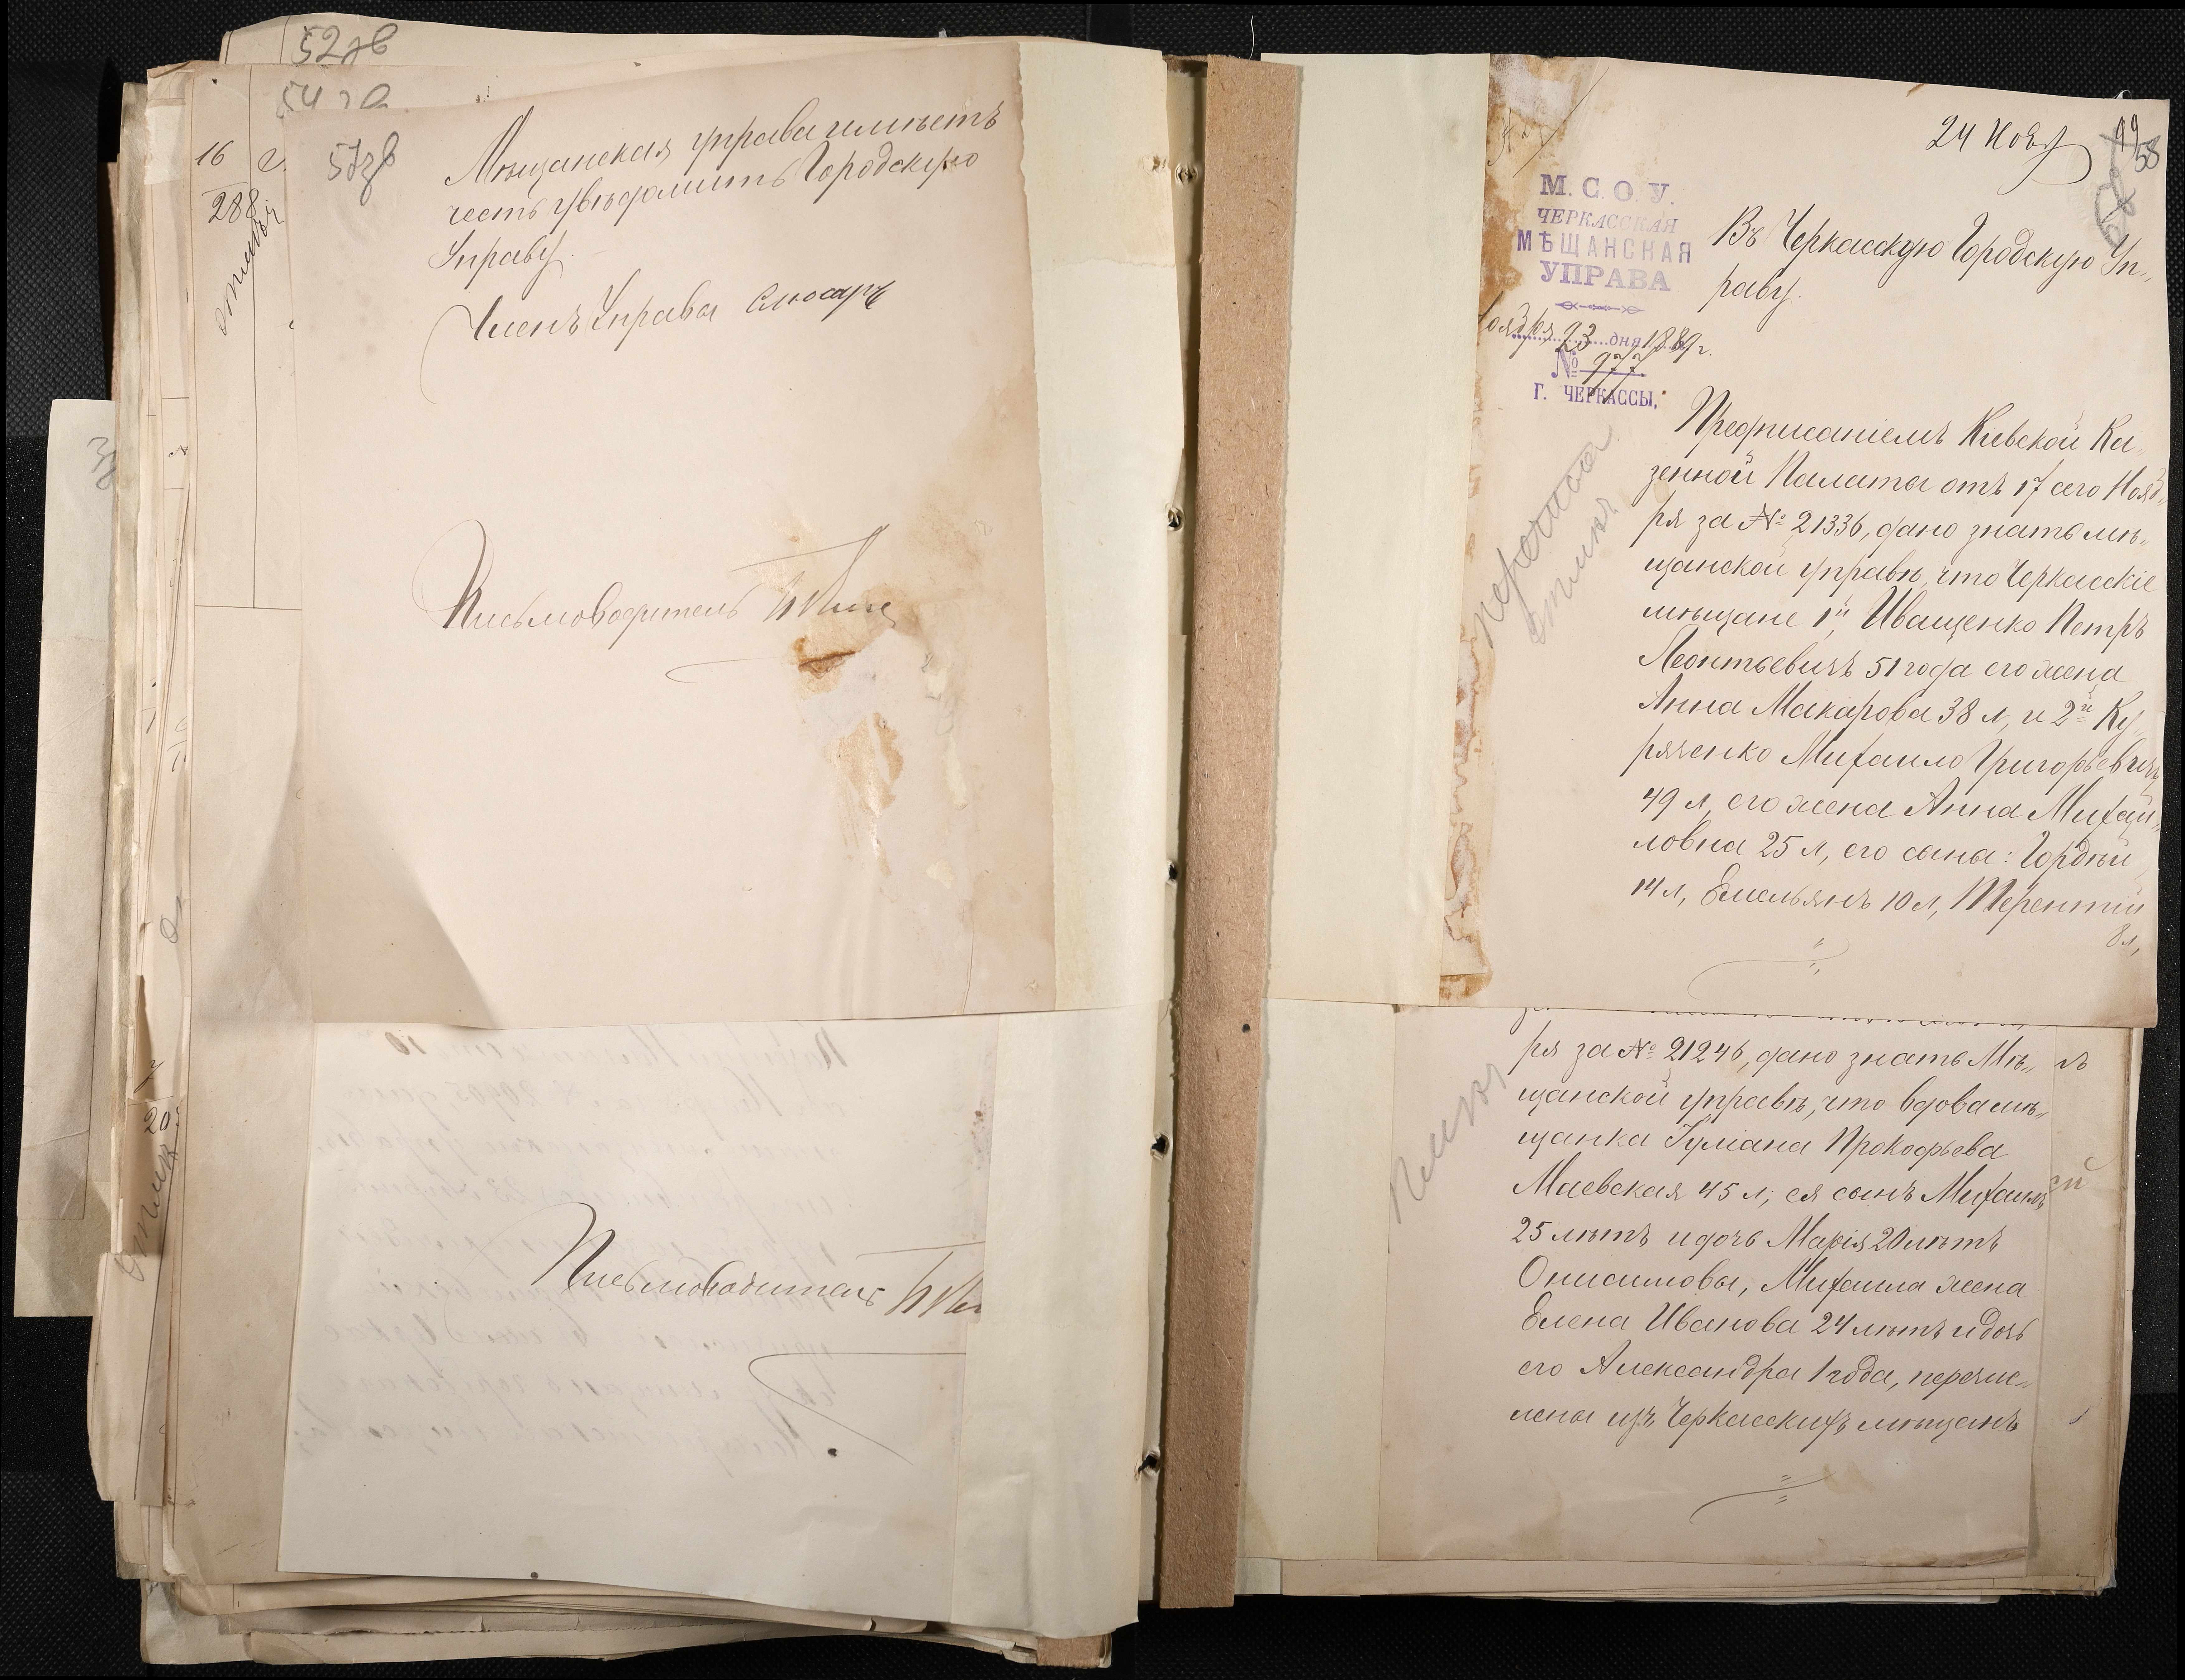 52зв
54зв
57зв
16
288
отмѣч
Мѣщанская управа имѣетъ
честь увѣдомить Городскую
Управу.
Членъ Управы Слюсарь
Письмоводитель
Письмоводитель
20
24 Нояб
58
М. С. О. У.
ЧЕРКАССКАЯ
МѢЩАНСКАЯ
УПРАВА
оября 23 дня 1889 г.
№ 977
Г. ЧЕРКАССЫ,
Въ Черкасскую Городскую Уп-
раву.
Предписаніемъ Кіевской Ка-
зенной Палаты отъ 17 сего Нояб-
ря за № 21336, дано знать мѣ-
щанской управѣ, что Черкасскіе
мѣщане 1й, Иващенко Петръ
Леонтьевичъ 51 года его жена
Анна Макарова 38 л, и 2й Ку-
ряченко Михаило Григорьевичъ
49 л, его жена Анна Михай-
ловна 25 л, его сыны: Гордѣй
14 л, Емельянъ 10 л, Терентій
8 л,
ря за № 21246, дано знать Мѣ-
щанской управѣ, что вдова мѣ-
щанка Іуліана Прокофьева
Маевская 45 л; ея сынъ Михаилъ
25 лѣтъ и дочь Марія 20 лѣтъ
Онисимовы, Михаила жена
Елена Иванова 24 лѣтъ и дочь
его Александра 1 года, перечис-
лены изъ Черкасскихъ мѣщанъ